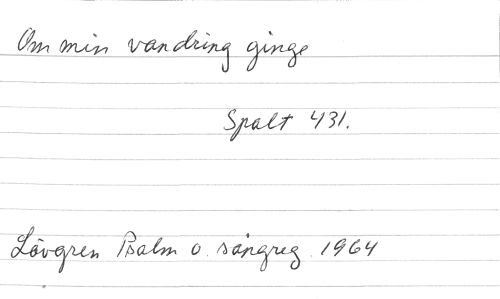 Om min vandring ginge
Spalt 431.
Lövgren Psalm o. sångreg. 1964